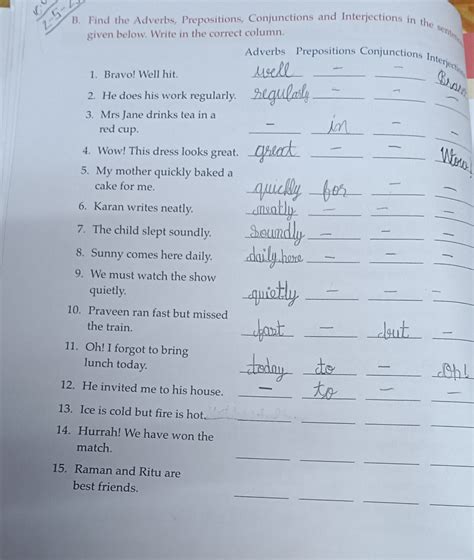 2-5-2
B. Find the Adverbs, Prepositions, Conjunctions and Interjections in the
given below. Write in the correct column.
Adverbs Prepositions Conjunctions
1. Bravo! Well hit. well – –
2. He does his work regularly. regularly – –
3. Mrs Jane drinks tea in a
red cup. – in – –
4. Wow! This dress looks great. great – – Wow!
5. My mother quickly baked a
cake for me. quickly for – –
6. Karan writes neatly. neatly – – –
7. The child slept soundly. soundly – – –
8. Sunny comes here daily. daily, here – – –
9. We must watch the show
quietly. quietly – – –
10. Praveen ran fast but missed
the train. fast – but –
11. Oh! I forgot to bring
lunch today. today to – Oh!
12. He invited me to his house. – to – –
13. Ice is cold but fire is hot.
14. Hurrah! We have won the
match.
15. Raman and Ritu are
best friends.